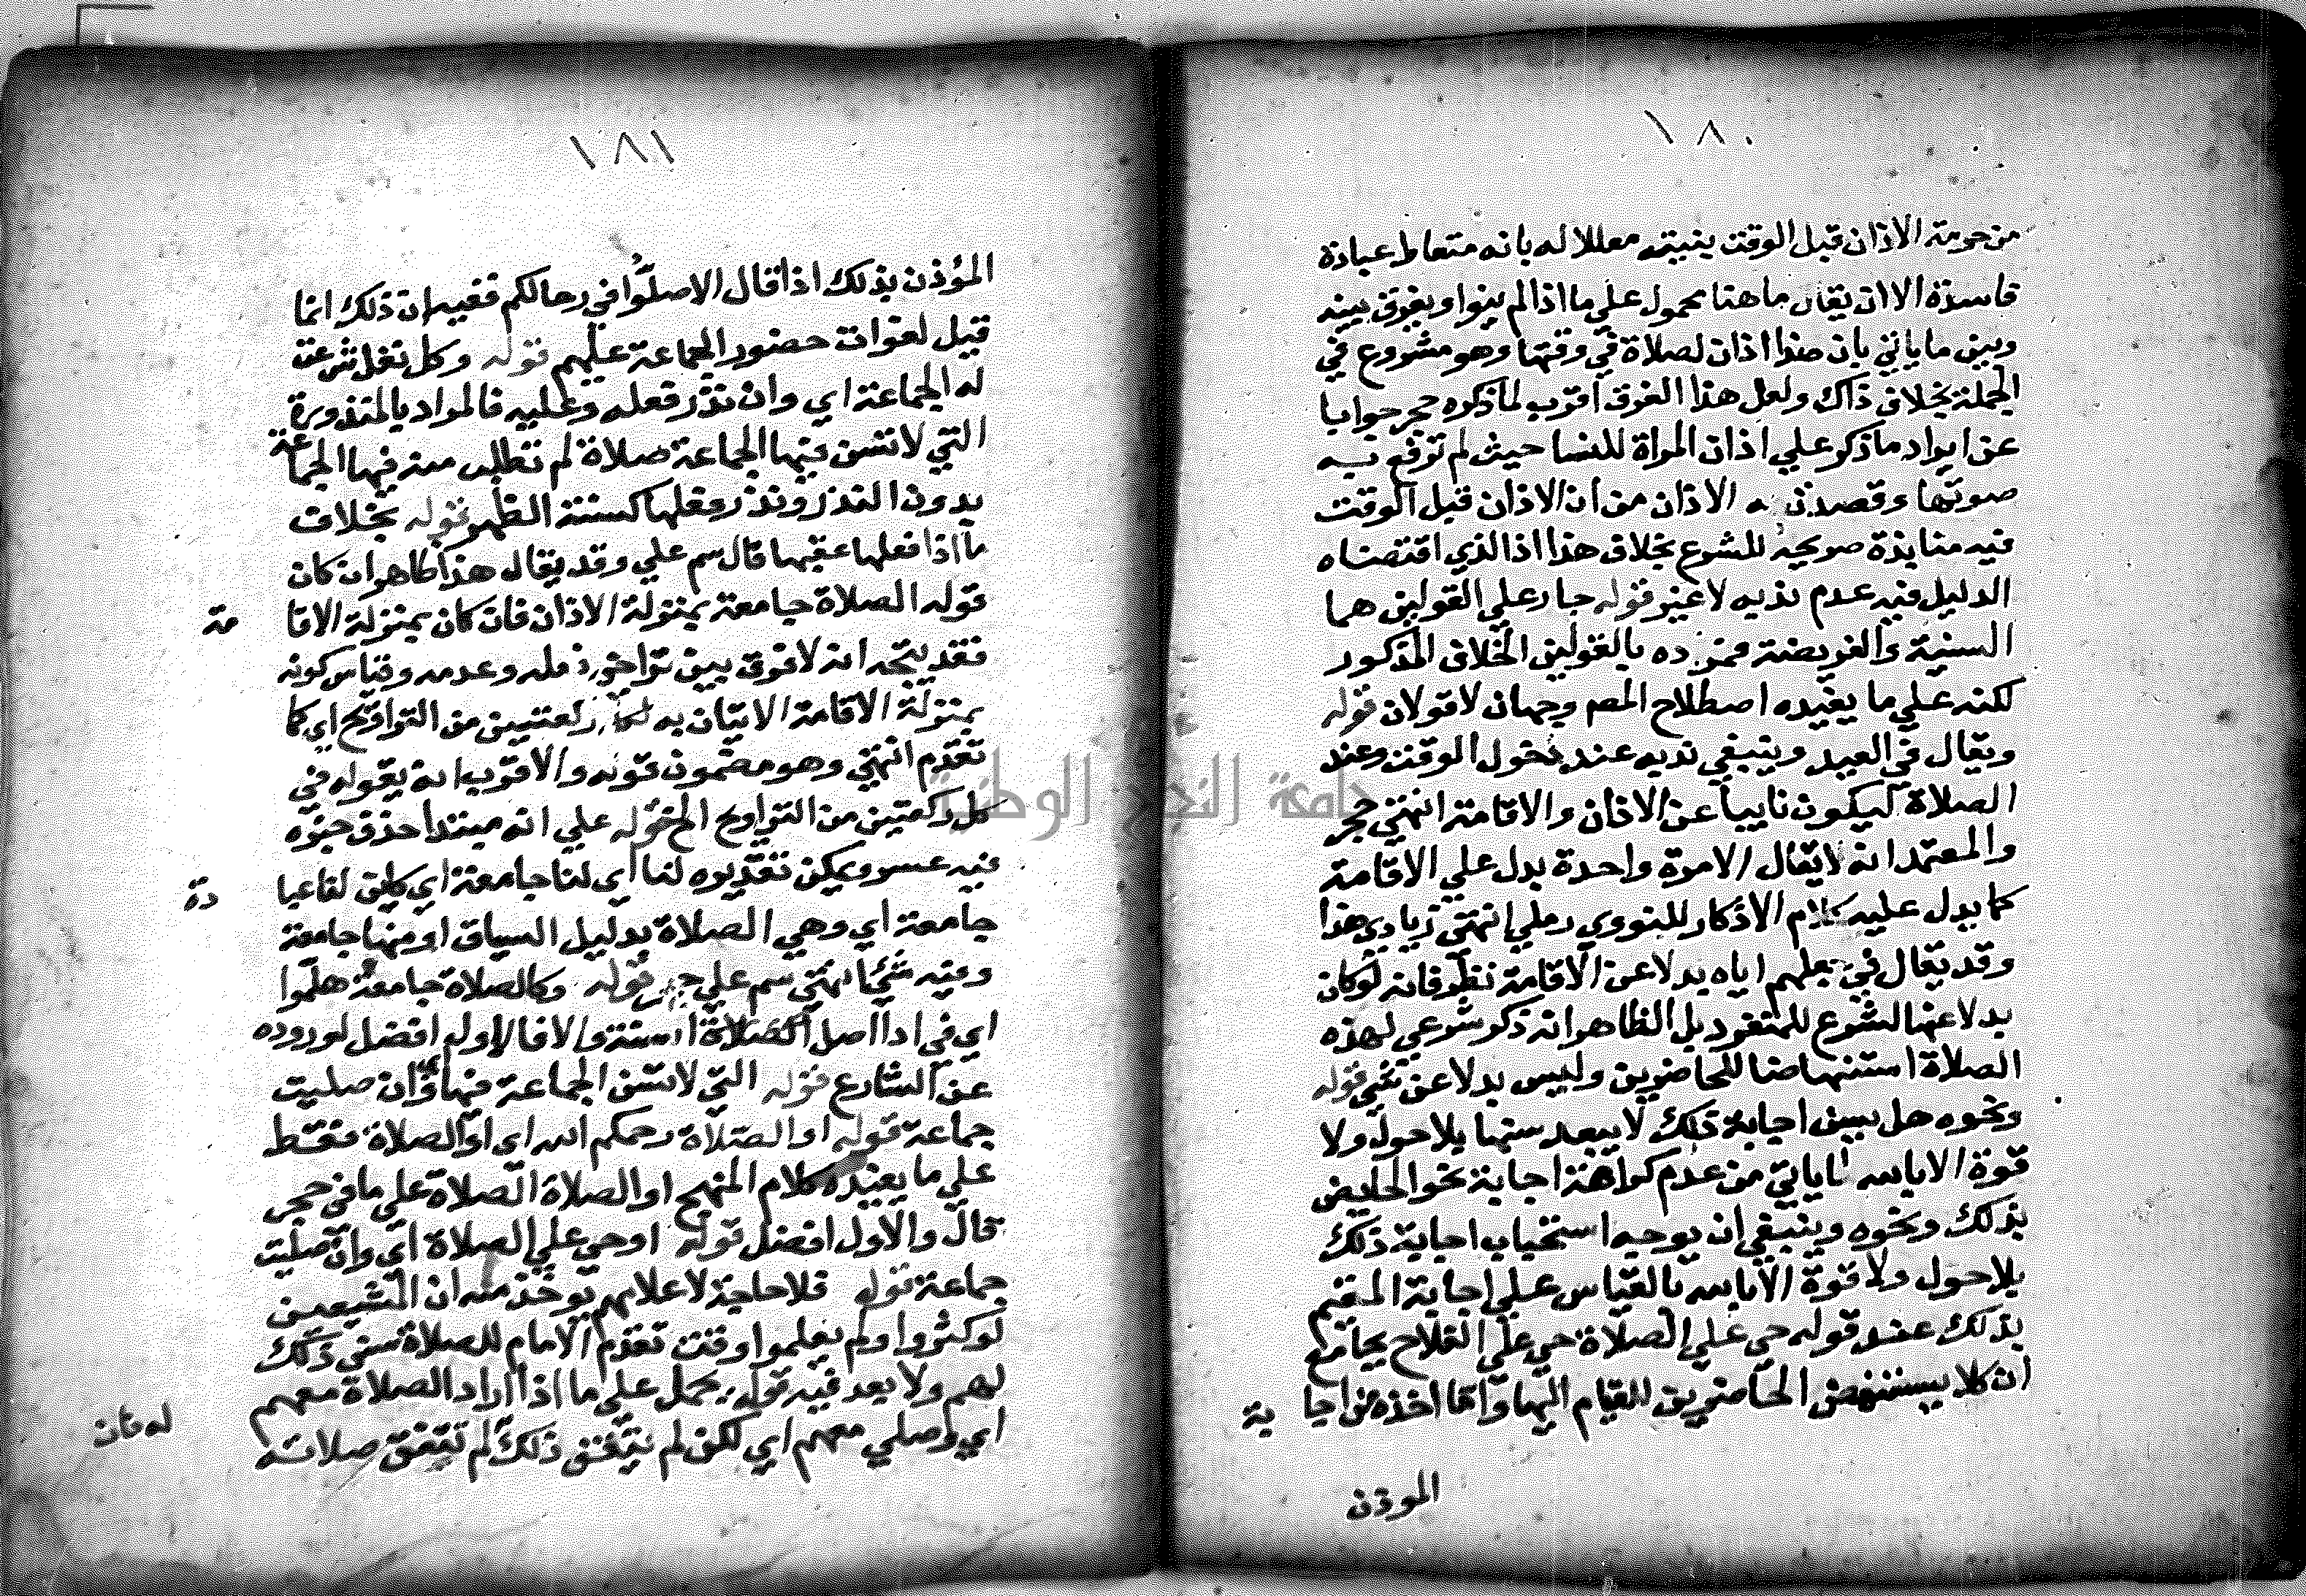 ١٨٠
من حرمة الاذان قبل الوقت بنيته معللا له بانه متعاط عبادة
فاسدة الا ان يقال ما هنا محمول علي ما اذا لم ينوا ويفرق بينه
وبين ما ياتي بان هذا اذان لصلاة في وقتها وهو مشروع في
الجملة بخلاف ذاك ولعل هذا الفرق اقرب لما ذكره حجر جوابا
عن ايراد ما ذكر علي اذان المراة للنسا حيث لم ترفع به
صوتها وقصدت به الاذان من ان الاذان قبل الوقت
فيه منابذة صريحة للشرع بخلاف هذا اذ الذي اقتضاه
الدليل فيه عدم ندبه لا غير قوله جار علي القولين هما
السنية والفريضة فمراده بالقولين الخلاف المذكور
لكنه علي ما يفيده اصطلاح المص وجهان لا قولان قوله
ويقال في العيد وينبغي ندبه عند دخول الوقت وعند
الصلاة ليكون نايبا عن الاذان والاقامة انتهي حجر
والمعتمد انه لا يقال الا مرة واحدة بدل علي الاقامة
كما يدل عليه كلام الاذكار للنووي رملي انتهي زيادي هذا
وقد يقال في جعلهم اياه بدلا عن الاقامة نظر فانه لو كان
بدلا عنها لشرع للمنفرد بل الظاهر انه ذكر شرعي لهذه
الصلاة استنهاضا للحاضرين وليس بدلا عن شي قوله
ونحوه هل يسن اجابة ذلك لا يبعد سنها بلا حول ولا
قوة الا بالله لما ياتي من عدم كراهة اجابة نحو الحايض
بذلك ونحوه وينبغي ان يوجه استحباب اجابة ذلك
بلا حول ولا قوة الا بالله بالقياس علي اجابة المقيم
بذلك عند قوله حي علي الصلاة حي علي الفلاح بجامع
ان كلا يستنهض الحاضرين للقيام اليها واما اخذه من اجا بة
الموذن
١٨١
المؤذن بذلك اذا قال الا صلّوا في رحالكم ففيه ان ذلك انما
قيل لفوات حضور الجماعة عليهم قوله وكل نفل شرعت
له الجماعة اي وان نذر فعله وعليه فالمراد بالمنذورة
التي لا تسن فيها الجماعة صلاة لم تطلب منه فيها الجماعة
بدون النذر ونذر فعلها كسنة الظهر قوله بخلاف
ما اذا فعلها عقبها قال سم علي وقد يقال هذا ظاهر ان كان
قوله الصلاة جامعة بمنزلة الاذان فان كان بمنزلة الاقا مة
فقد يتجه انه لا فرق بين تراخي فعله وعدمه وقياس كونه
بمنزلة الاقامة الاتيان به لكل ركعتين من التراويح اي كما
تقدم انتهي وهو مضمون قوله والاقرب انه يقوله في
كل ركعتين من التراويح الخ قوله علي انه مبتدا حذف خبره
فيه عسر ويمكن تقديره لنا اي لنا جامعة اي كاين لنا عبا دة
جامعة اي وهي الصلاة بدليل السياق او منها جامعة
وفيه شئ انتهي سم علي حجر قوله وكالصلاة جامعة هلموا
اي في ادا اصل السنة والا فالاول افضل لوروده
عن الشارع قوله التي لا تسن الجماعة فيها اي وان صليت
جماعة قوله او الصلاة رحمكم الله اي او الصلاة فقط
علي ما يفيده كلام المنهج او الصلاة الصلاة علي ما في حجر
قال والاول افضل قوله او حي علي الصلاة اي وان صليت
جماعة قوله فلا حاجة لاعلامهم يوخذ منه ان المشيعين
لو كثروا ولم يعلموا وقت تقدم الامام للصلاة سن ذلك
لهم ولا بعد فيه قوله يحمل علي ما اذا اراد الصلاة معهم
اي وصلي معهم اي لكن لم يتفق ذلك لم تتفق صلاته
له فان